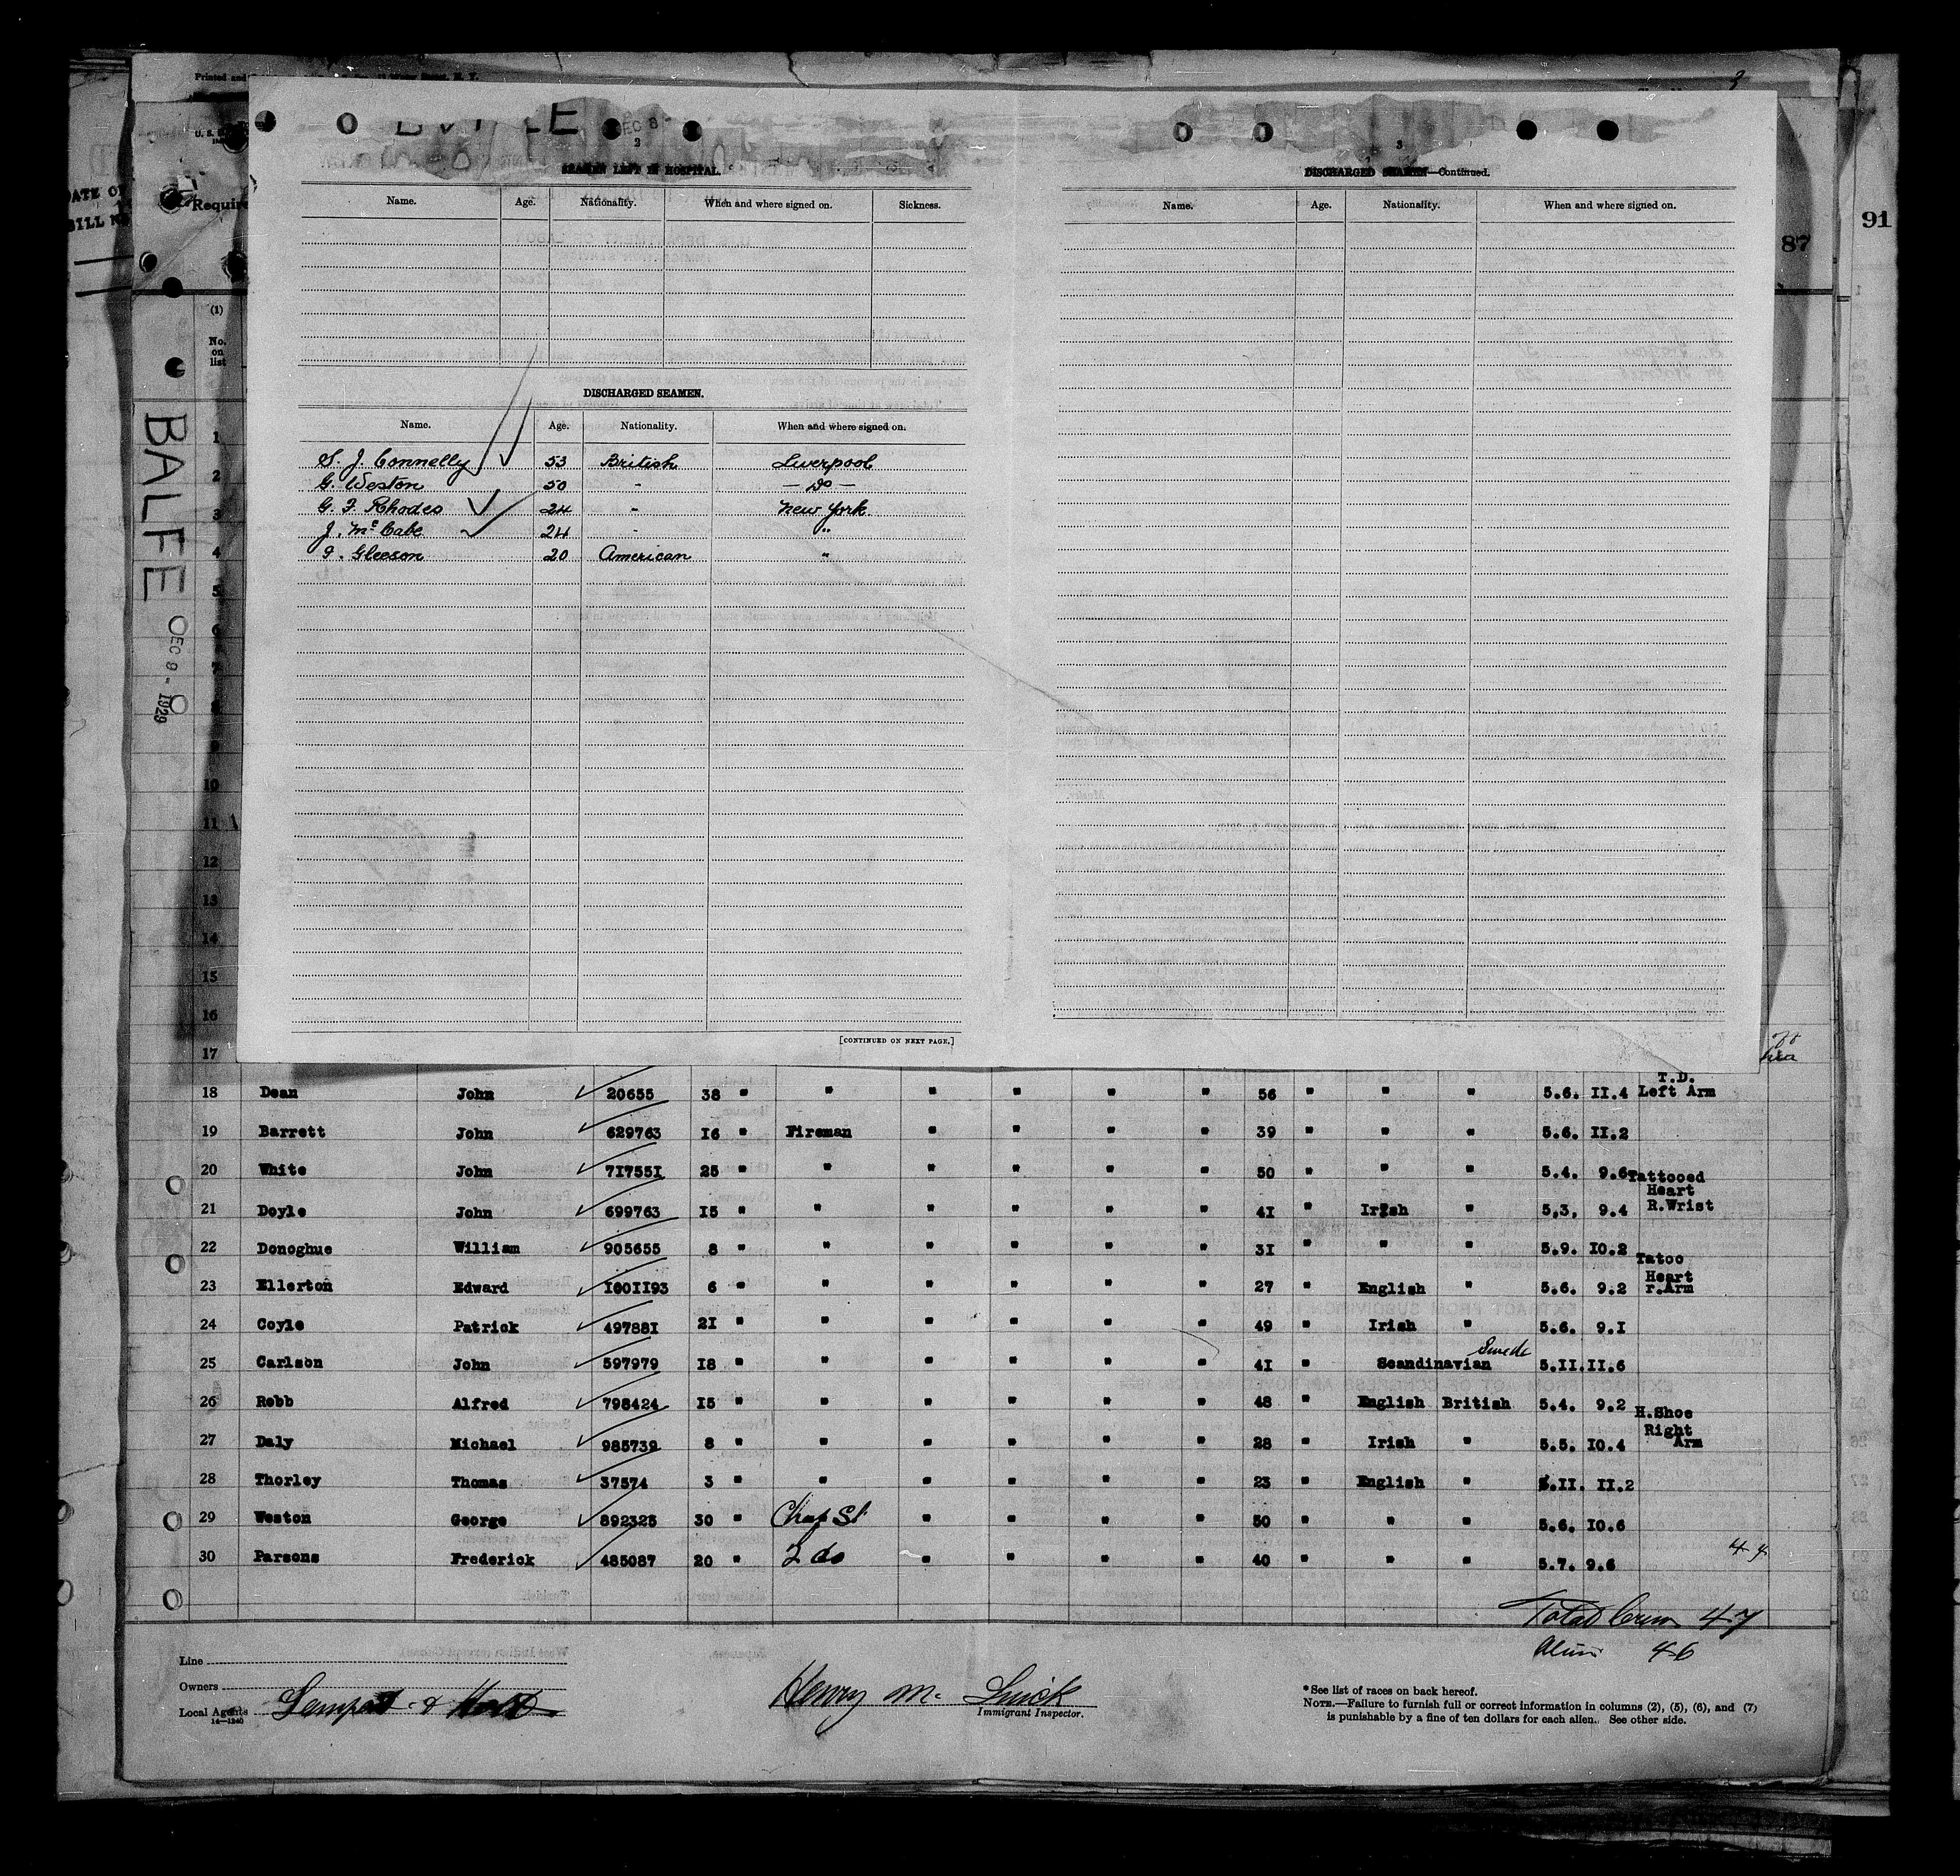 Printed and
U. S.
Require
DATE OF
BILL N
87
91
BALFE
DEC 8 - 1929
DEC 8 -
2
SEAMEN LEFT IN HOSPITAL.
Name. Age. Nationality. When and where signed on. Sickness.
DISCHARGED SEAMEN.
Name. Age. Nationality. When and where signed on.
S. J. Connelly 53 British Liverpool
G. Weston 50 - — Do —
G. F. Rhodes 24 - New York
J. McCabe 24 - "
Gleeson 20 American "
[CONTINUED ON NEXT PAGE.]
3
DISCHARGED SEAMEN—Continued.
Name. Age. Nationality. When and where signed on.
(1)
No.
on
list
1
2
3
4
5
6
7
8
9
10
11
12
13
14
15
16
17
T.D.
18 Dean John 20655 38 " " " " " " 56 " " " 5.6. II.4 Left Arm
19 Barrett John 629763 I6 " Fireman " " " " 39 " " " 5.6. II.2
20 White John 717551 25 " " " " " " 50 " " " 5.4. 9.6 Tattooed
Heart
21 Doyle John 699763 I5 " " " " " " 4I " Irish " 5.3. 9.4 R.Wrist
22 Donoghue William 905655 8 " " " " " " 3I " " " 5.9. I0.2
Tatoo
Heart
23 Ellerton Edward I00II93 6 " " " " " " 27 " English " 5.6. 9.2 r.Arm
24 Coyle Patrick 49788I 2I " " " " " " 49 " Irish " 5.6. 9.I
Swede
25 Carlson John 597979 I8 " " " " " " 4I " Scandinavian 5.II. II.6
26 Robb Alfred 798424 I5 " " " " " " 48 " English British 5.4. 9.2
H.Shoe
Right
27 Daly Michael 985739 8 " " " " " " 28 " Irish " 5.5. I0.4 Arm
28 Thorley Thomas 37574 3 " " " " " " 23 " English " 5.II. II.2
29 Weston George 892325 30 " " " " " 50 " " " 5.6. I0.6
30 Parsons Frederick 485087 20 " 2 do " " " " 40 " " " 5.7. 9.6
Total Crew 47
Alien 46
Line
Owners
Local Agents
14—1240
Henry M.
Immigrant Inspector.
* See list of races on back hereof.
NOTE.—Failure to furnish full or correct information in columns (2), (5), (6), and (7)
is punishable by a fine of ten dollars for each alien. See other side.